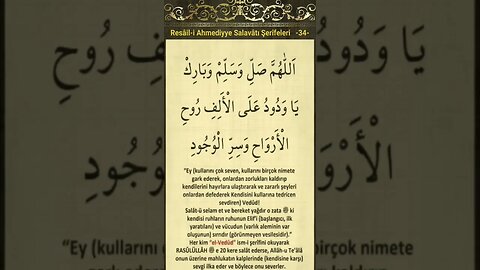 Resâil-i Ahmediyye Salavâtı Şerifeleri -34-
اَللّٰهُمَّ صَلِّ وَسَلِّمْ وَبَارِكْ
يَا وَدُودُ عَلَى الْأَلِفِ رُوحِ
الْأَرْوَاحِ وَسِرِّ الْوُجُودِ
"Ey (kullarını çok seven, kullarını birçok nimete
gark ederek, onlardan zorlukları kaldırıp
kendilerini hayırlara ulaştırarak ve zararlı şeyleri
onlardan defederek Kendisini kullarına tedricen
sevdiren) Vedûd!
Salât-ü selam et ve bereket yağdır o zata ﷺ ki
kendisi ruhların ruhunun Elif'i (başlangıcı, ilk
yaratılanı) ve vücudun (varlık aleminin var
oluşunun) sırrıdır (görünmeyen vesilesidir)."
Her kim "el-Vedûd" ism-i şerifini okuyarak
RASÛLÜLLÂH ﷺ e 20 kere salât ederse, Allâh-u Te'âlâ
onun üzerine mahlukatın kalplerinde (kendisine karşı)
sevgi ilka eder ve böylece onu severler.